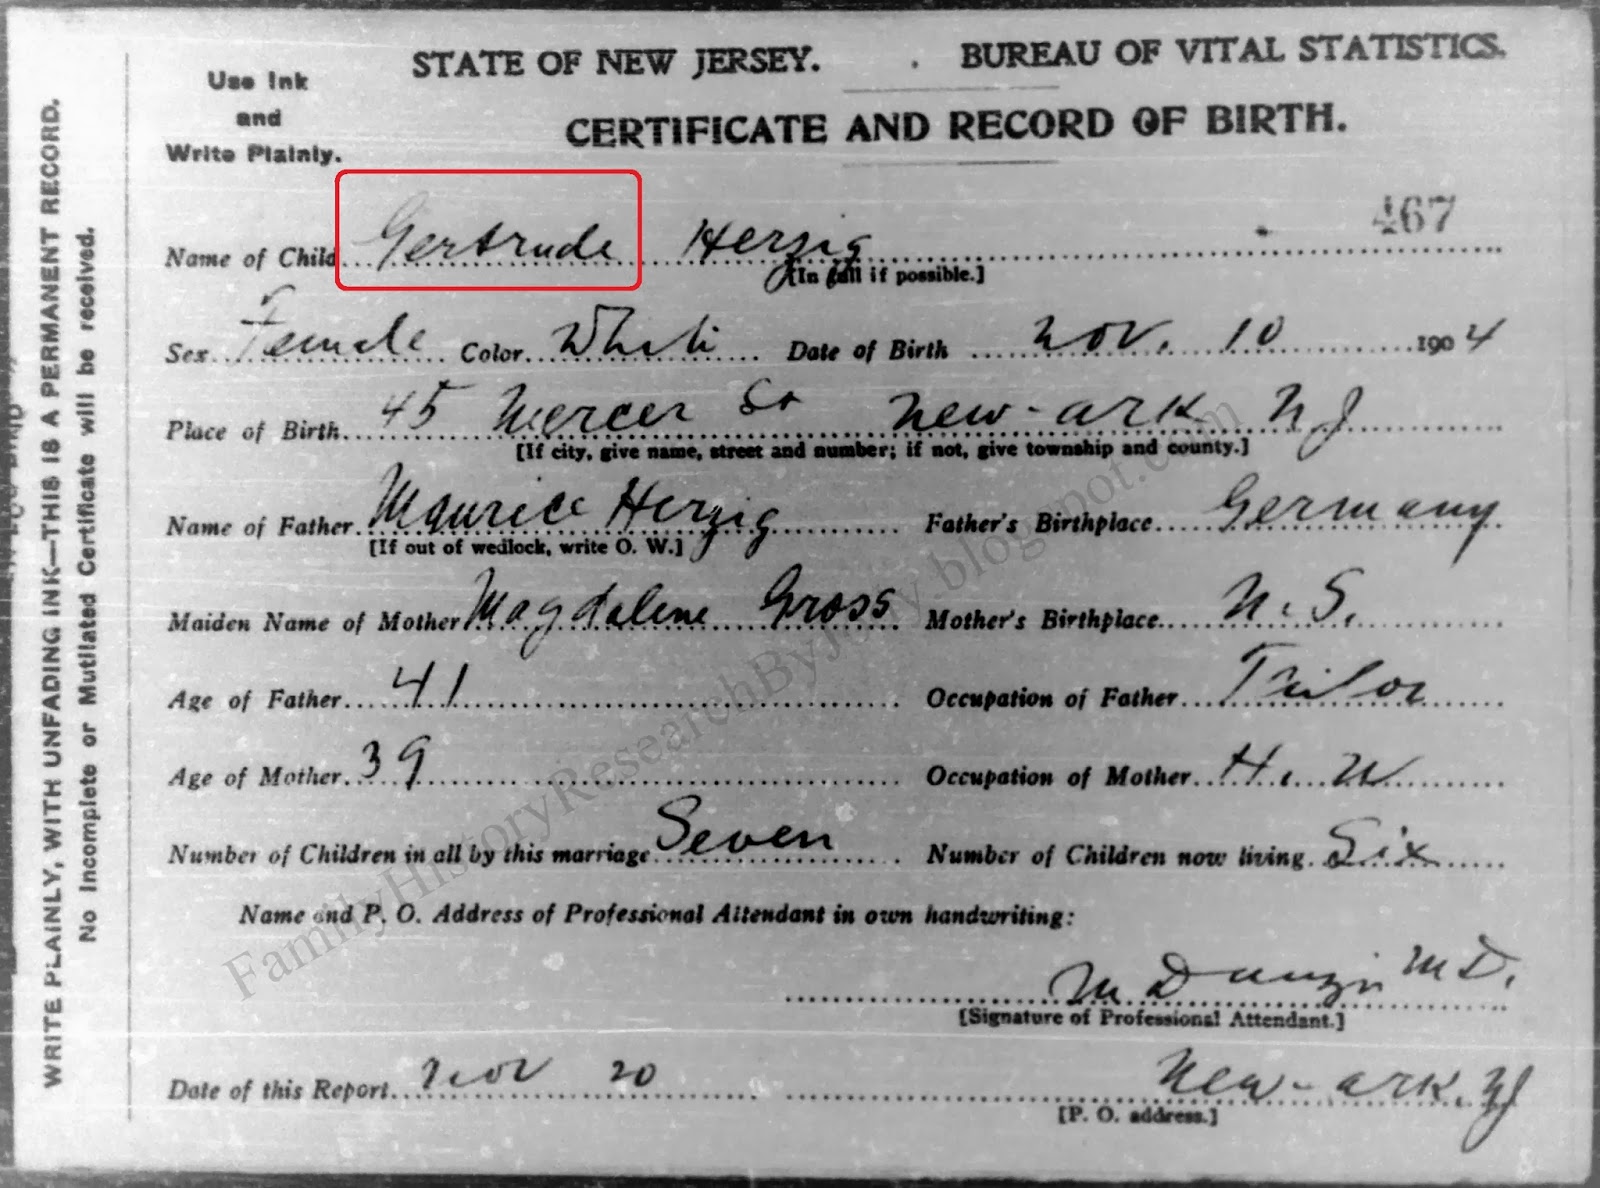 STATE OF NEW JERSEY. BUREAU OF VITAL STATISTICS.
Use Ink
and
Write Plainly.
CERTIFICATE AND RECORD OF BIRTH.
467
Name of Child Gertrude Herzig
[In full if possible.]
Sex Female Color White Date of Birth Nov. 10 1904
Place of Birth 45 Mercer St New-ark N J
[If city, give name, street and number; if not, give township and county.]
Name of Father Maurice Herzig Father's Birthplace Germany
[If out of wedlock, write O. W.]
Maiden Name of Mother Magdalene Gross Mother's Birthplace N. S.
Age of Father 41 Occupation of Father Tailor
Age of Mother 39 Occupation of Mother H. W
Number of Children in all by this marriage Seven Number of Children now living Six
Name and P. O. Address of Professional Attendant in own handwriting:
M D M D.
[Signature of Professional Attendant.]
Date of this Report Nov 20 New-ark. NJ
[P. O. address.]
WRITE PLAINLY, WITH UNFADING INK—THIS IS A PERMANENT RECORD.
No Incomplete or Mutilated Certificate will be received.
FamilyHistoryResearchByJody.blogspot.com